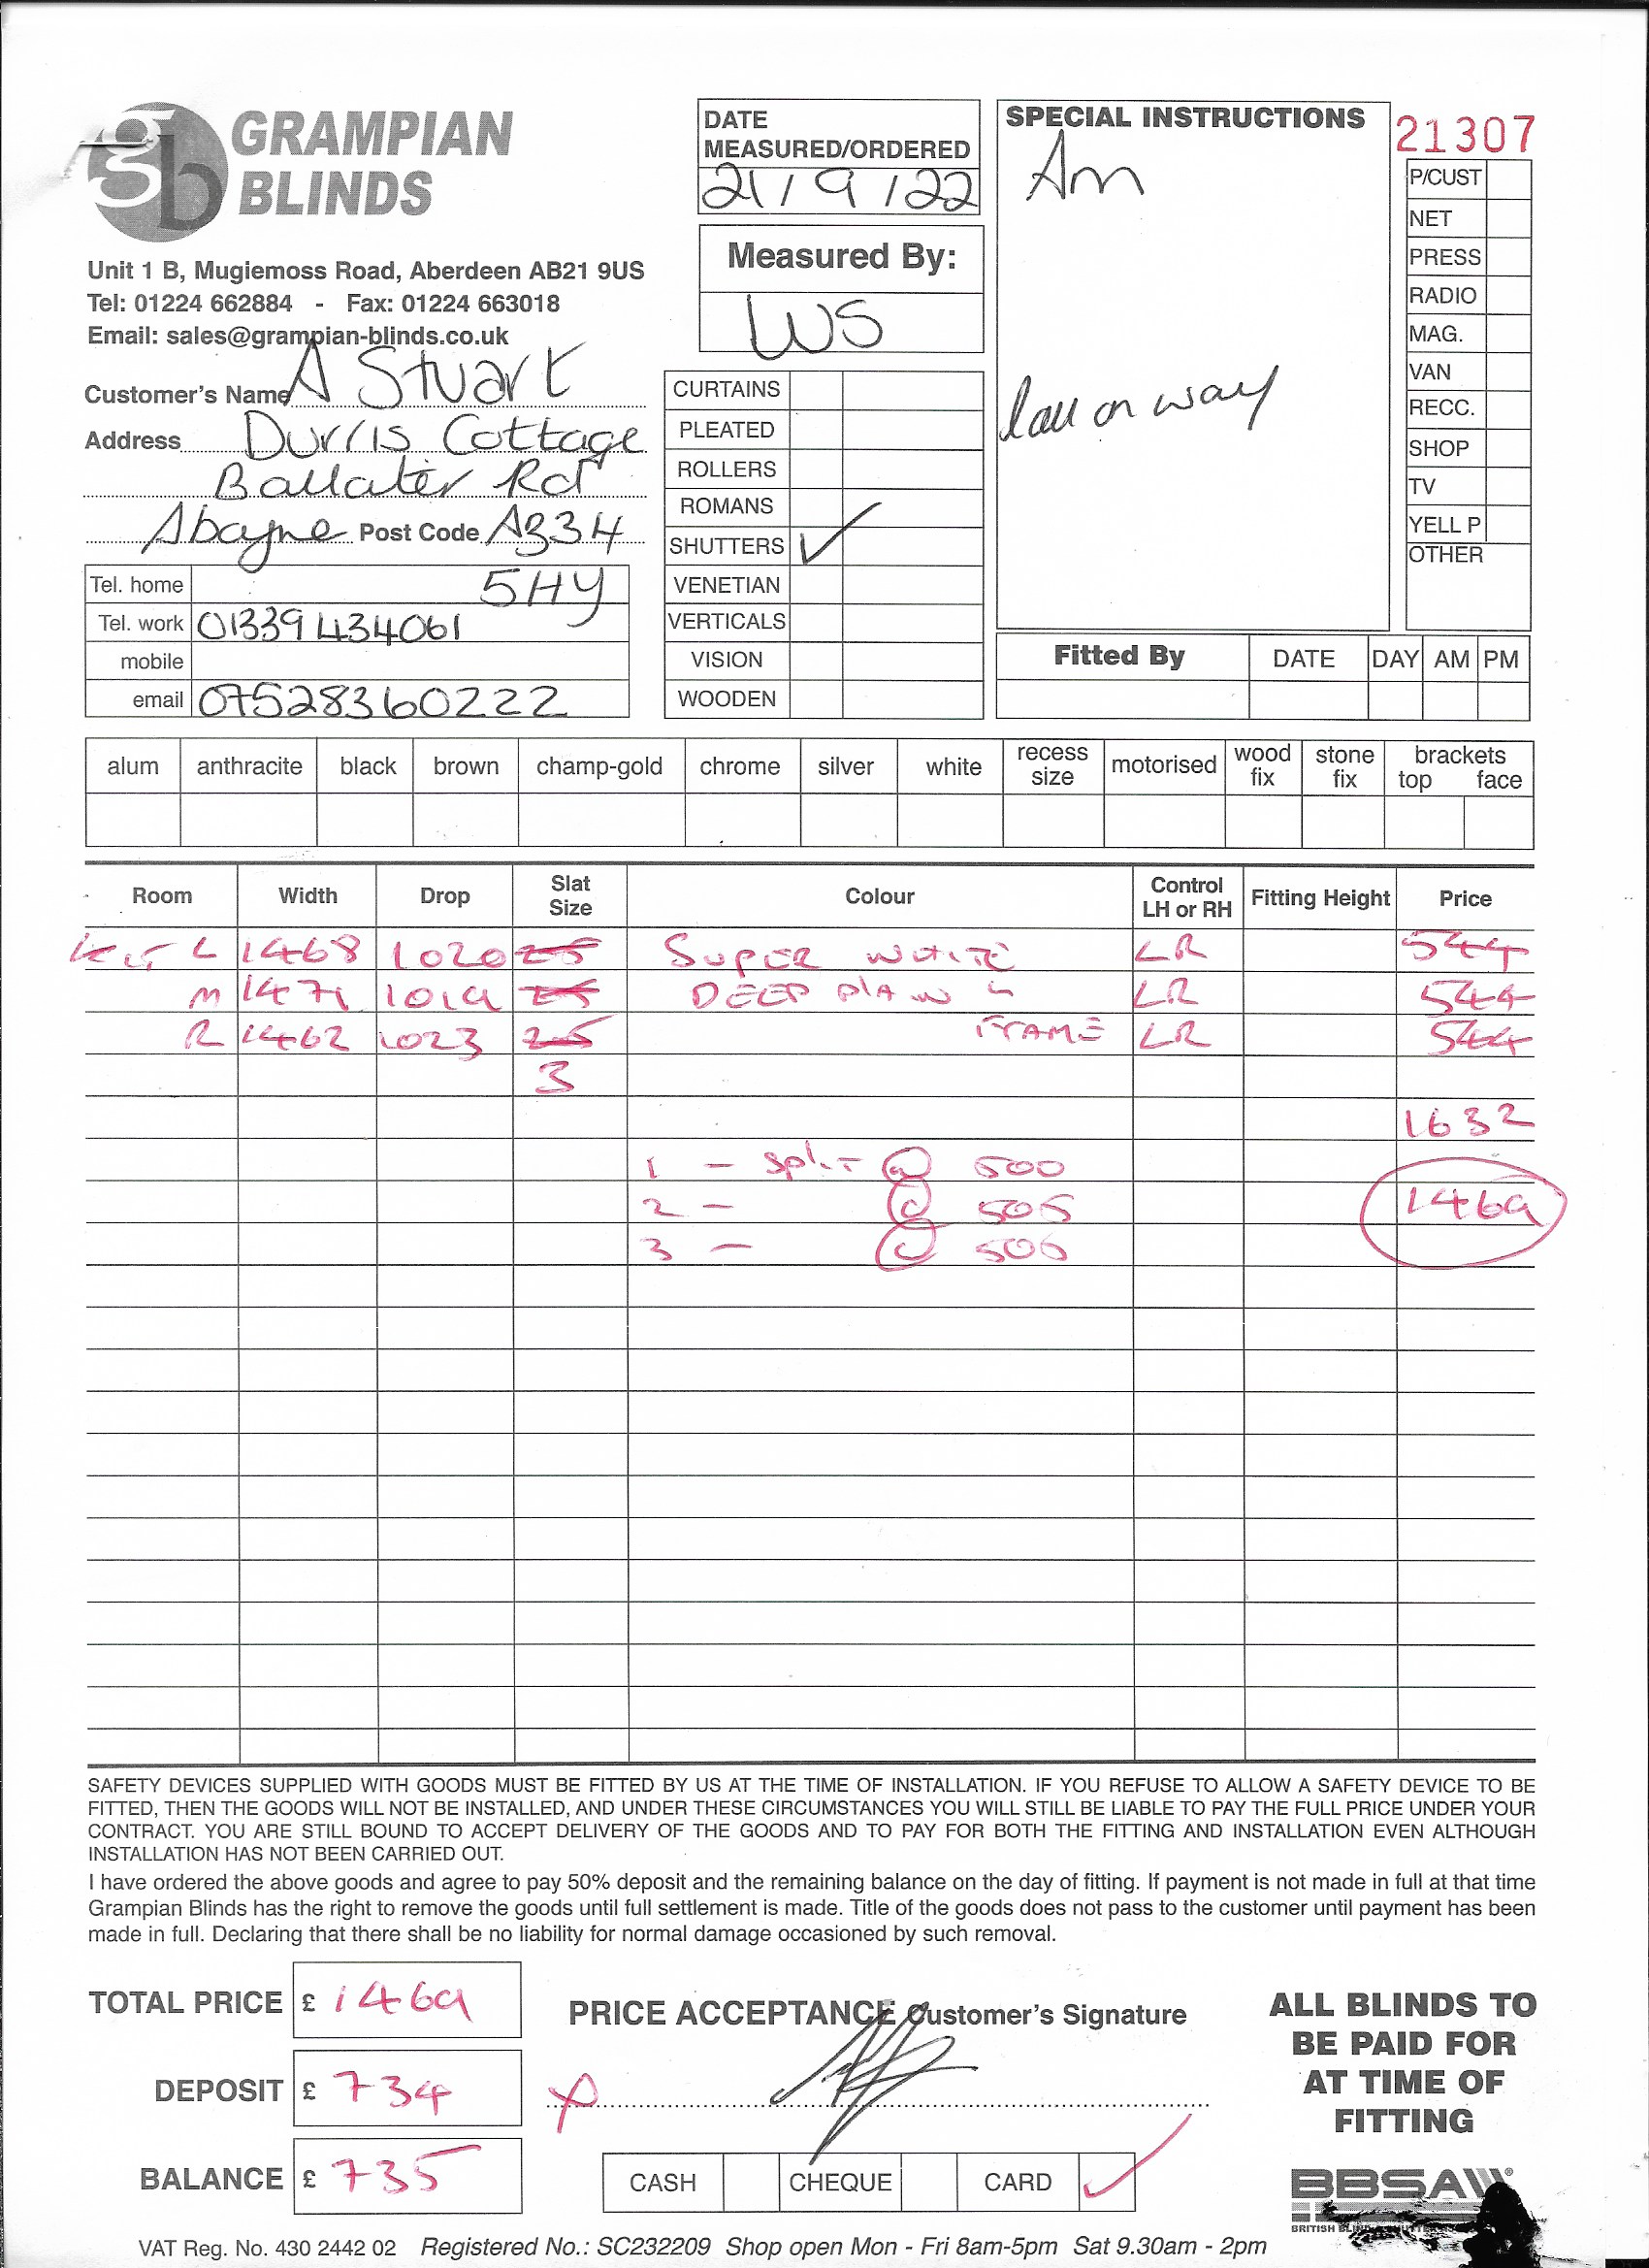 gb GRAMPIAN
BLINDS
Unit 1 B, Mugiemoss Road, Aberdeen AB21 9US
Tel: 01224 662884 - Fax: 01224 663018
Email: sales@grampian-blinds.co.uk
Customer's Name A Stuart
Address Durris Cottage
Ballater Rd
Aboyne Post Code AB34
5HY
Tel. home
Tel. work 01339 434061
mobile
email 07528360222
DATE
MEASURED/ORDERED
21/9/22
Measured By:
WS
CURTAINS
PLEATED
ROLLERS
ROMANS
SHUTTERS ✓
VENETIAN
VERTICALS
VISION
WOODEN
SPECIAL INSTRUCTIONS
Am
Call on way
21307
P/CUST
NET
PRESS
RADIO
MAG.
VAN
RECC.
SHOP
TV
YELL P
OTHER
Fitted By DATE DAY AM PM
alum anthracite black brown champ-gold chrome silver white recess size motorised wood fix stone fix brackets top face
Room Width Drop Slat Size Colour Control LH or RH Fitting Height Price
Kit L 1468 1020 25 SUPER WHITE LR 544
M 1471 1019 25 DEEP PLAIN L LR 544
R 1462 1023 25 FRAME LR 544
3
1632
1 - Split @ 500
2 - @ 505 1469
3 - @ 505
SAFETY DEVICES SUPPLIED WITH GOODS MUST BE FITTED BY US AT THE TIME OF INSTALLATION. IF YOU REFUSE TO ALLOW A SAFETY DEVICE TO BE
FITTED, THEN THE GOODS WILL NOT BE INSTALLED, AND UNDER THESE CIRCUMSTANCES YOU WILL STILL BE LIABLE TO PAY THE FULL PRICE UNDER YOUR
CONTRACT. YOU ARE STILL BOUND TO ACCEPT DELIVERY OF THE GOODS AND TO PAY FOR BOTH THE FITTING AND INSTALLATION EVEN ALTHOUGH
INSTALLATION HAS NOT BEEN CARRIED OUT.
I have ordered the above goods and agree to pay 50% deposit and the remaining balance on the day of fitting. If payment is not made in full at that time
Grampian Blinds has the right to remove the goods until full settlement is made. Title of the goods does not pass to the customer until payment has been
made in full. Declaring that there shall be no liability for normal damage occasioned by such removal.
TOTAL PRICE £ 1469
DEPOSIT £ 734
BALANCE £ 735
PRICE ACCEPTANCE Customer's Signature
X
CASH CHEQUE CARD ✓
ALL BLINDS TO
BE PAID FOR
AT TIME OF
FITTING
BBSA
VAT Reg. No. 430 2442 02 Registered No.: SC232209 Shop open Mon - Fri 8am-5pm Sat 9.30am - 2pm